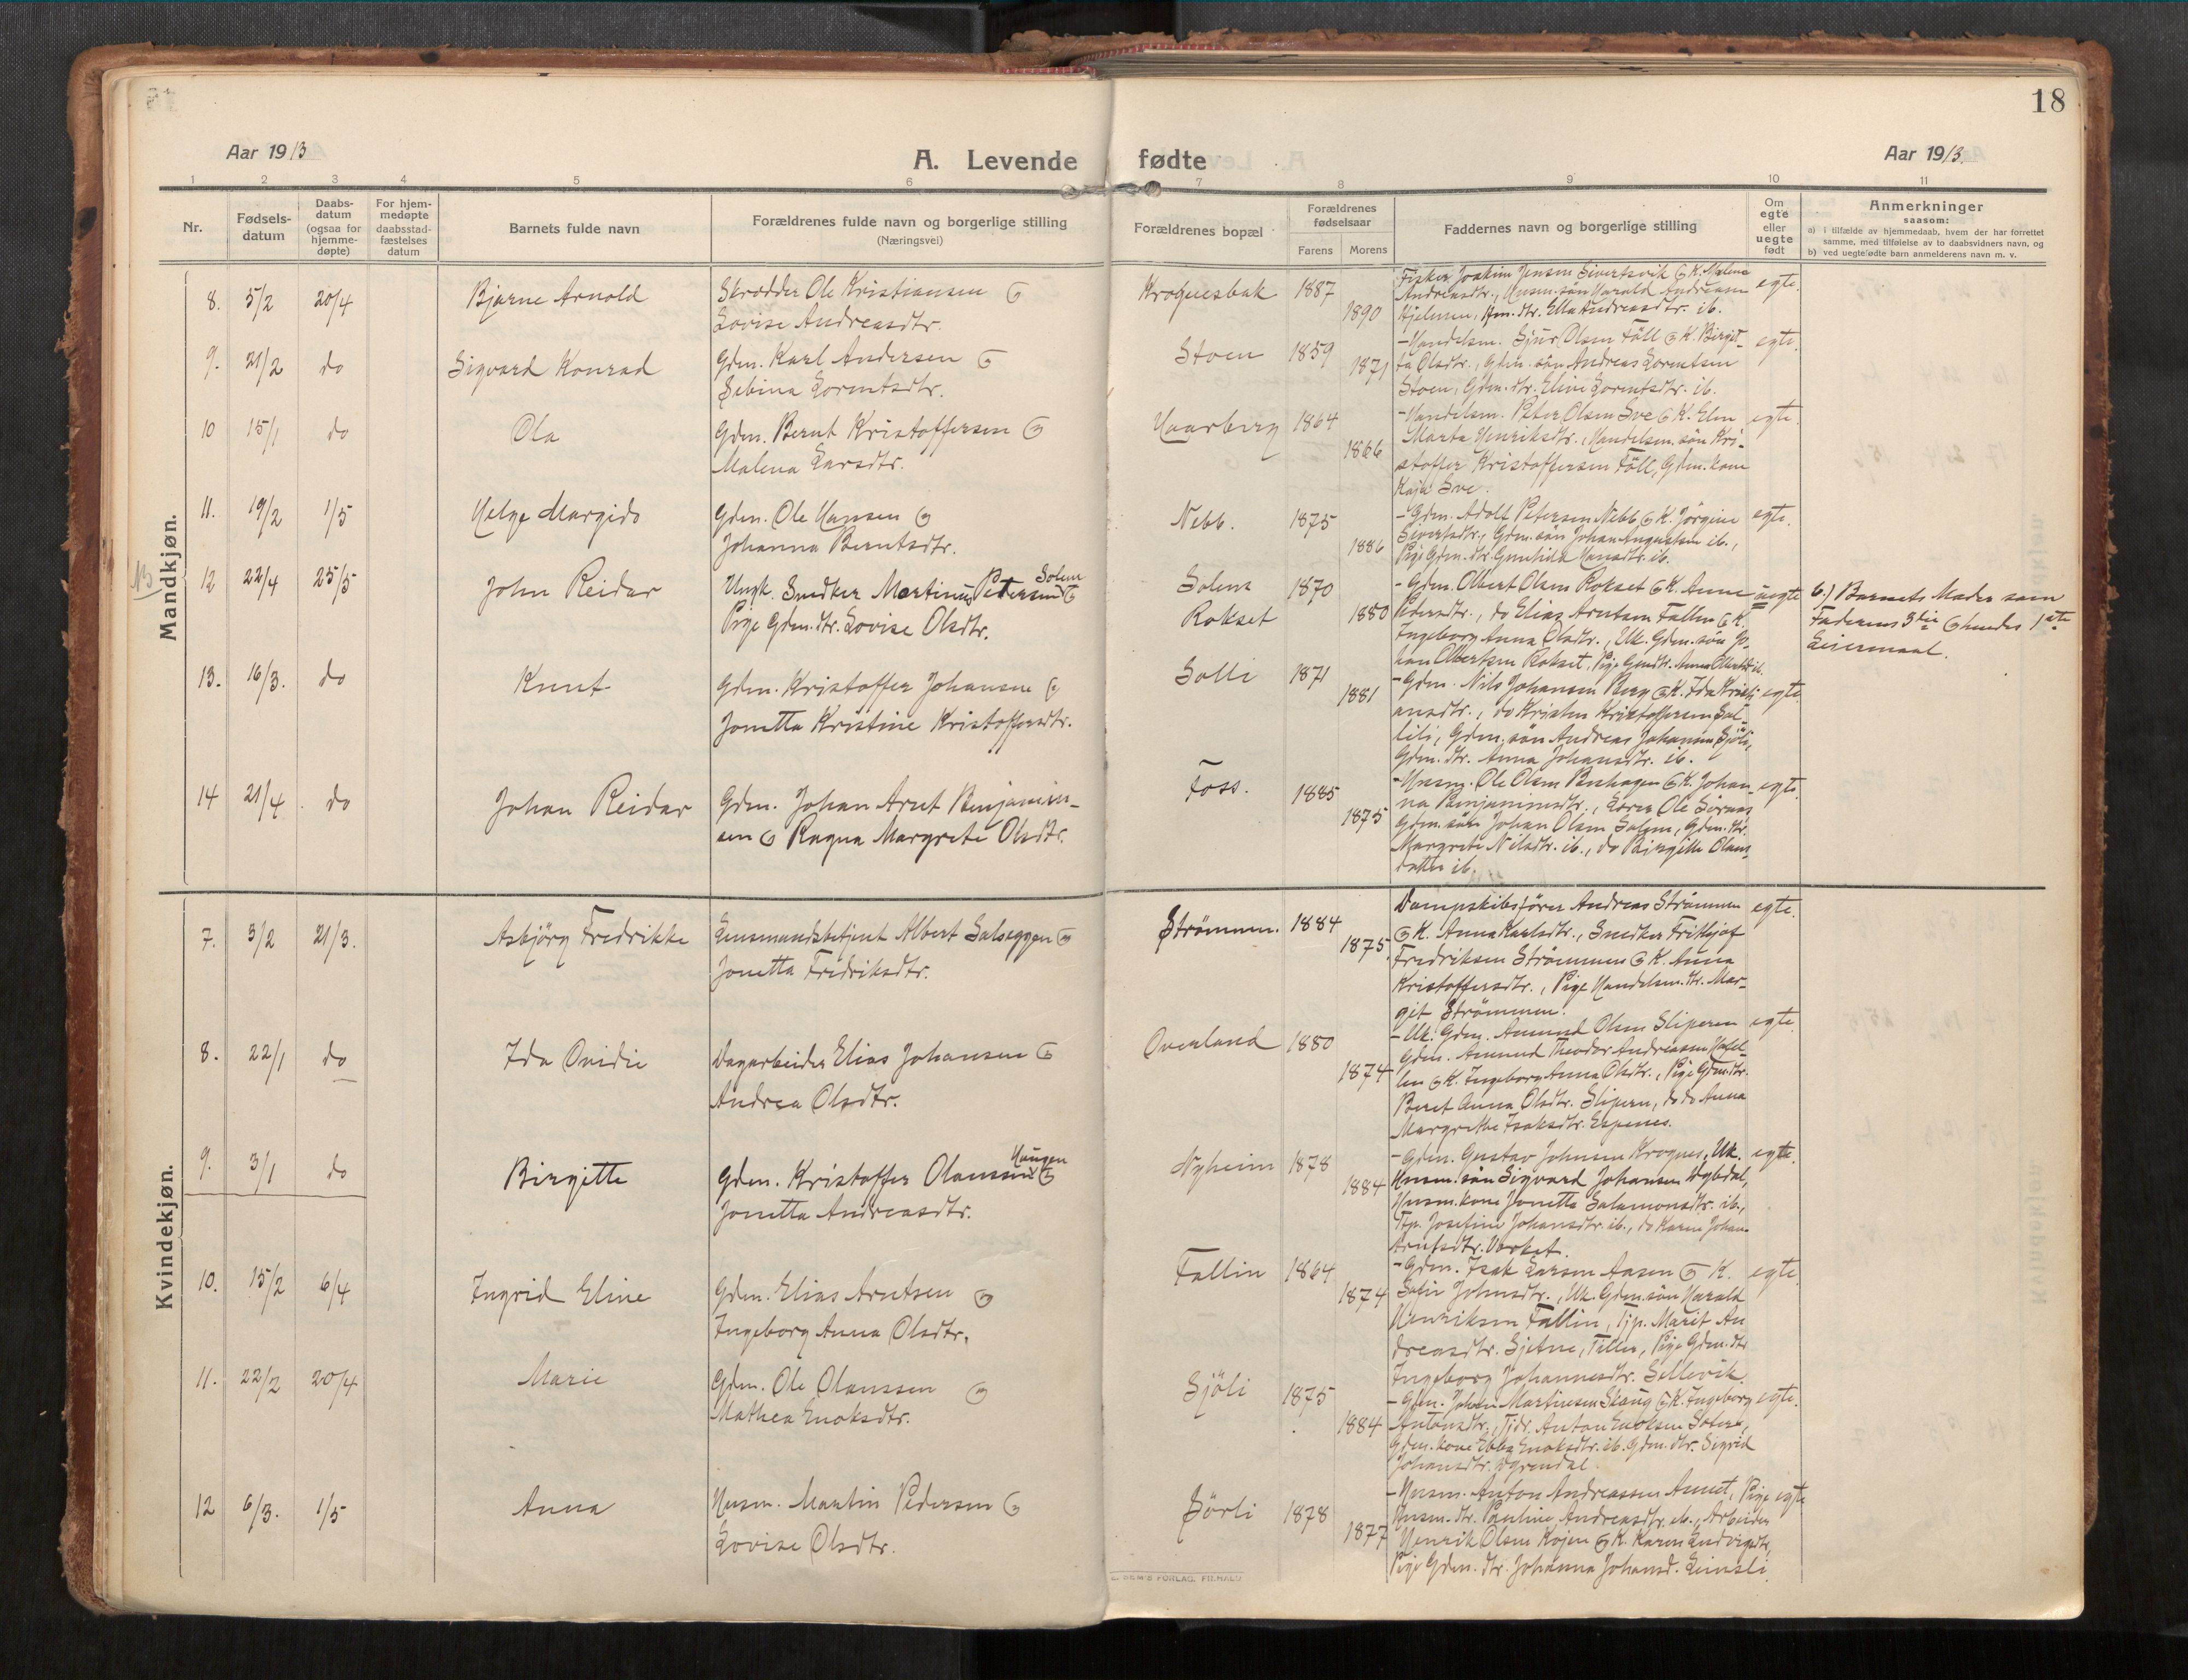 18
Aar 1913
A. Levende fødte
Aar 1913.
1 2 3 4 5 6 7 8 9 10 11
Nr.
Fødsels-
datum
Daabs-
datum
(ogsaa for
hjemme-
døpte)
For hjem-
medøpte
daabsstad-
fæstelses
datum
Barnets fulde navn
Forældrenes fulde navn og borgerlige stilling
(Næringsvei)
Forældrenes bopæl
Forældrenes
fødselsaar
Farens Morens
Faddernes navn og borgerlige stilling
Om
egte
eller
uegte
født
Anmerkninger
saasom:
a) i tilfælde av hjemmedaab, hvem der har forrettet
samme, med tilføielse av to daabsvidners navn, og
b) ved uegtefødte barn anmelderens navn m. v.
Mandkjøn.
8. 5/2 20/4 Bjarne Arnold
Skrædder Ole Kristiansen &
Lovise Andreasdtr.
1887
1890
Fisker Joakim Jensen Sivertsvik & K. Malene
Andreasdtr., Husm. søn Harald Andreasen
Hjelmen, Hm. dtr. Ella Andreasdtr. ib.
egte.
9. 21/2 do Sigvard Konrad
Gdm. Karl Andersen &
Sebina Lorentsdtr.
Stoen 1859
1871
- Handelsm. Sjur Olsen Föll & K. Birgit-
ta Olsdtr., Gdm. søn Andreas Lorentsen
Stoen, Gdm. dtr. Eline Lorentsdtr. ib.
egte.
10 15/1 do Ola
Gdm. Bernt Kristoffersen &
Malena Larsdtr.
Haarberg 1864
1866
- Handelsm. Peter Olsen Sve & K. Elen
Marta Henriksdtr., Handelsm. søn Kri-
stoffer Kristoffersen Föll, Gdm. kone
Kaja Sve.
egte.
11. 19/2 1/5 Helge Margido
Gdm. Ole Hansen &
Johanna Berntsdtr.
Nebb. 1875
1886
- Gdm. Adolf Petersen Nebb & K. Jörgine
Sivertsdtr., Gdm. søn Johan Augustsen ib.,
Pige Gdm. dtr. Gunhilda Hansdtr. ib.
egte.
12 22/4 25/5 John Reidar
Ungk. Snedker Martinus Petersen Solem &
Pige Gdm. dtr. Lovise Olsdtr.
Solem
Rokset
1870
1880
- Gdm. Olbert Olsen Rokset & K. Anne
Pedersdtr., do Elias Arntsen Fallin & K.
Ingeborg Anna Olsdtr., Uk. Gdm. søn Jo-
han Olbertsen Rokset, Pige Gmdtr. Anna Olbertsdtr. ib.
uegte
b.) Barnets Moder som
Faderens 3die & hendes 1ste
Leiermaal.
13. 16/3. do Knut
Gdm. Kristoffer Johansen &
Jonetta Kristine Kristoffersdtr.
Solli 1871
1881
- Gdm. Nils Johansen Berg & K. Ida Kristi-
ansdtr., do Kristen Kristoffersen Sol-
lili, Gdm. søn Andreas Johansen Sjöli,
Gdm. dtr. Anna Johansdtr. ib.
egte.
14 21/4 do Johan Reidar
Gdm. Johan Arnt Benjamin-
sen & Ragna Margrete Olsdtr.
Foss. 1885
1875
- Husm. Ole Olsen Bushagen & K. Johan-
na Benjaminsdtr., Lærer Ole
Gdm. søn Johan Olsen Solem, Gdm. dtr.
Margrete Nilsdtr. ib., do Birgitte Olaus-
datter ib.
egte.
Kvindekjøn.
7. 3/2 21/3. Asbjörg Fredrikke
Lensmandsbetjent Albert Salseggen &
Jonetta Fredriksdtr.
Strömmen. 1884
1875.
Dampskibsförer Andreas Strömmen
& K. Anna Karlsdtr., Snedker Frithjof
Fredriksen Strömmen & K. Anna
Kristoffersdtr., Pige Handelsm. dtr. Mar-
git Strömmen.
egte.
8. 22/1 do Ida Ovidie
Dagarbeider Elias Johansen &
Andrea Olsdtr.
Overland 1880
1874
- Uk. Gdm. Amund Olsen Sliperen
Gdm. Amund Theodor Andreassen
& K. Ingeborg Anna Olsdtr., Pige Gdm. dtr.
Beret Anna Olsdtr. Slipern, do do Anna
Margrethe Isaksdtr. Espenes.
egte.
9. 3/1 do Birgitte
Gdm. Kristoffer Olaussen Haugen &
Jonetta Andreasdtr.
Nyheim 1878
1884
- Gdm. Gustav Johnsen Krognes, Uk.
Husm. søn Sigvard Johansen Dybdal,
Husm. kone Jonetta Salamonsdtr. ib.,
Tjp. Josefine Johansdtr. ib., do Karen Johan-
Arntsdtr.
egte.
10. 15/2 6/4 Ingrid Eline
Gdm. Elias Arntsen &
Ingeborg Anna Olsdtr.
Fallin 1864
1874
- Gdm. Isak Larsen Aasen & K.
Sofie Johnsdtr., Uk. Gdm. søn Harald
Henriksen Fallin, Tjp. Marit An-
dreasdtr. Sjetne, Tiller, Pige Gdm. dtr.
Ingeborg Johannesdtr. Sellevik.
egte.
11. 22/2 20/4 Marie
Gdm. Ole Olaussen &
Mathea Enoksdtr.
Sjöli 1875
1884
- Gdm. Johan Martinsen Skaug & K. Ingeborg
Antonsdtr., Tjdr. Anton Enoksen
Gdm. kone Ebba Enoksdtr. ib. Gdm. dtr. Sigrid
Johansdtr.
egte.
12 6/3. 1/5 Anna
Husm. Martin Pedersen &
Lovise Olsdtr.
Sörli 1878
1877
- Husm. Anton Andreassen Aunet, Pige
Husm. dtr. Pauline Andreasdtr. ib., Arbeider
Henrik Olsen Kojen & K. Karen Ludvigsdtr,
Pige Gdm. dtr. Johanna Johansd.
egte